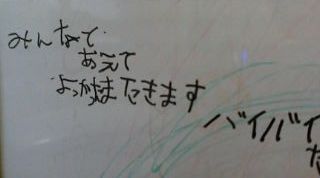 みんなで
あえて
よかったまできます
バイバイ
た